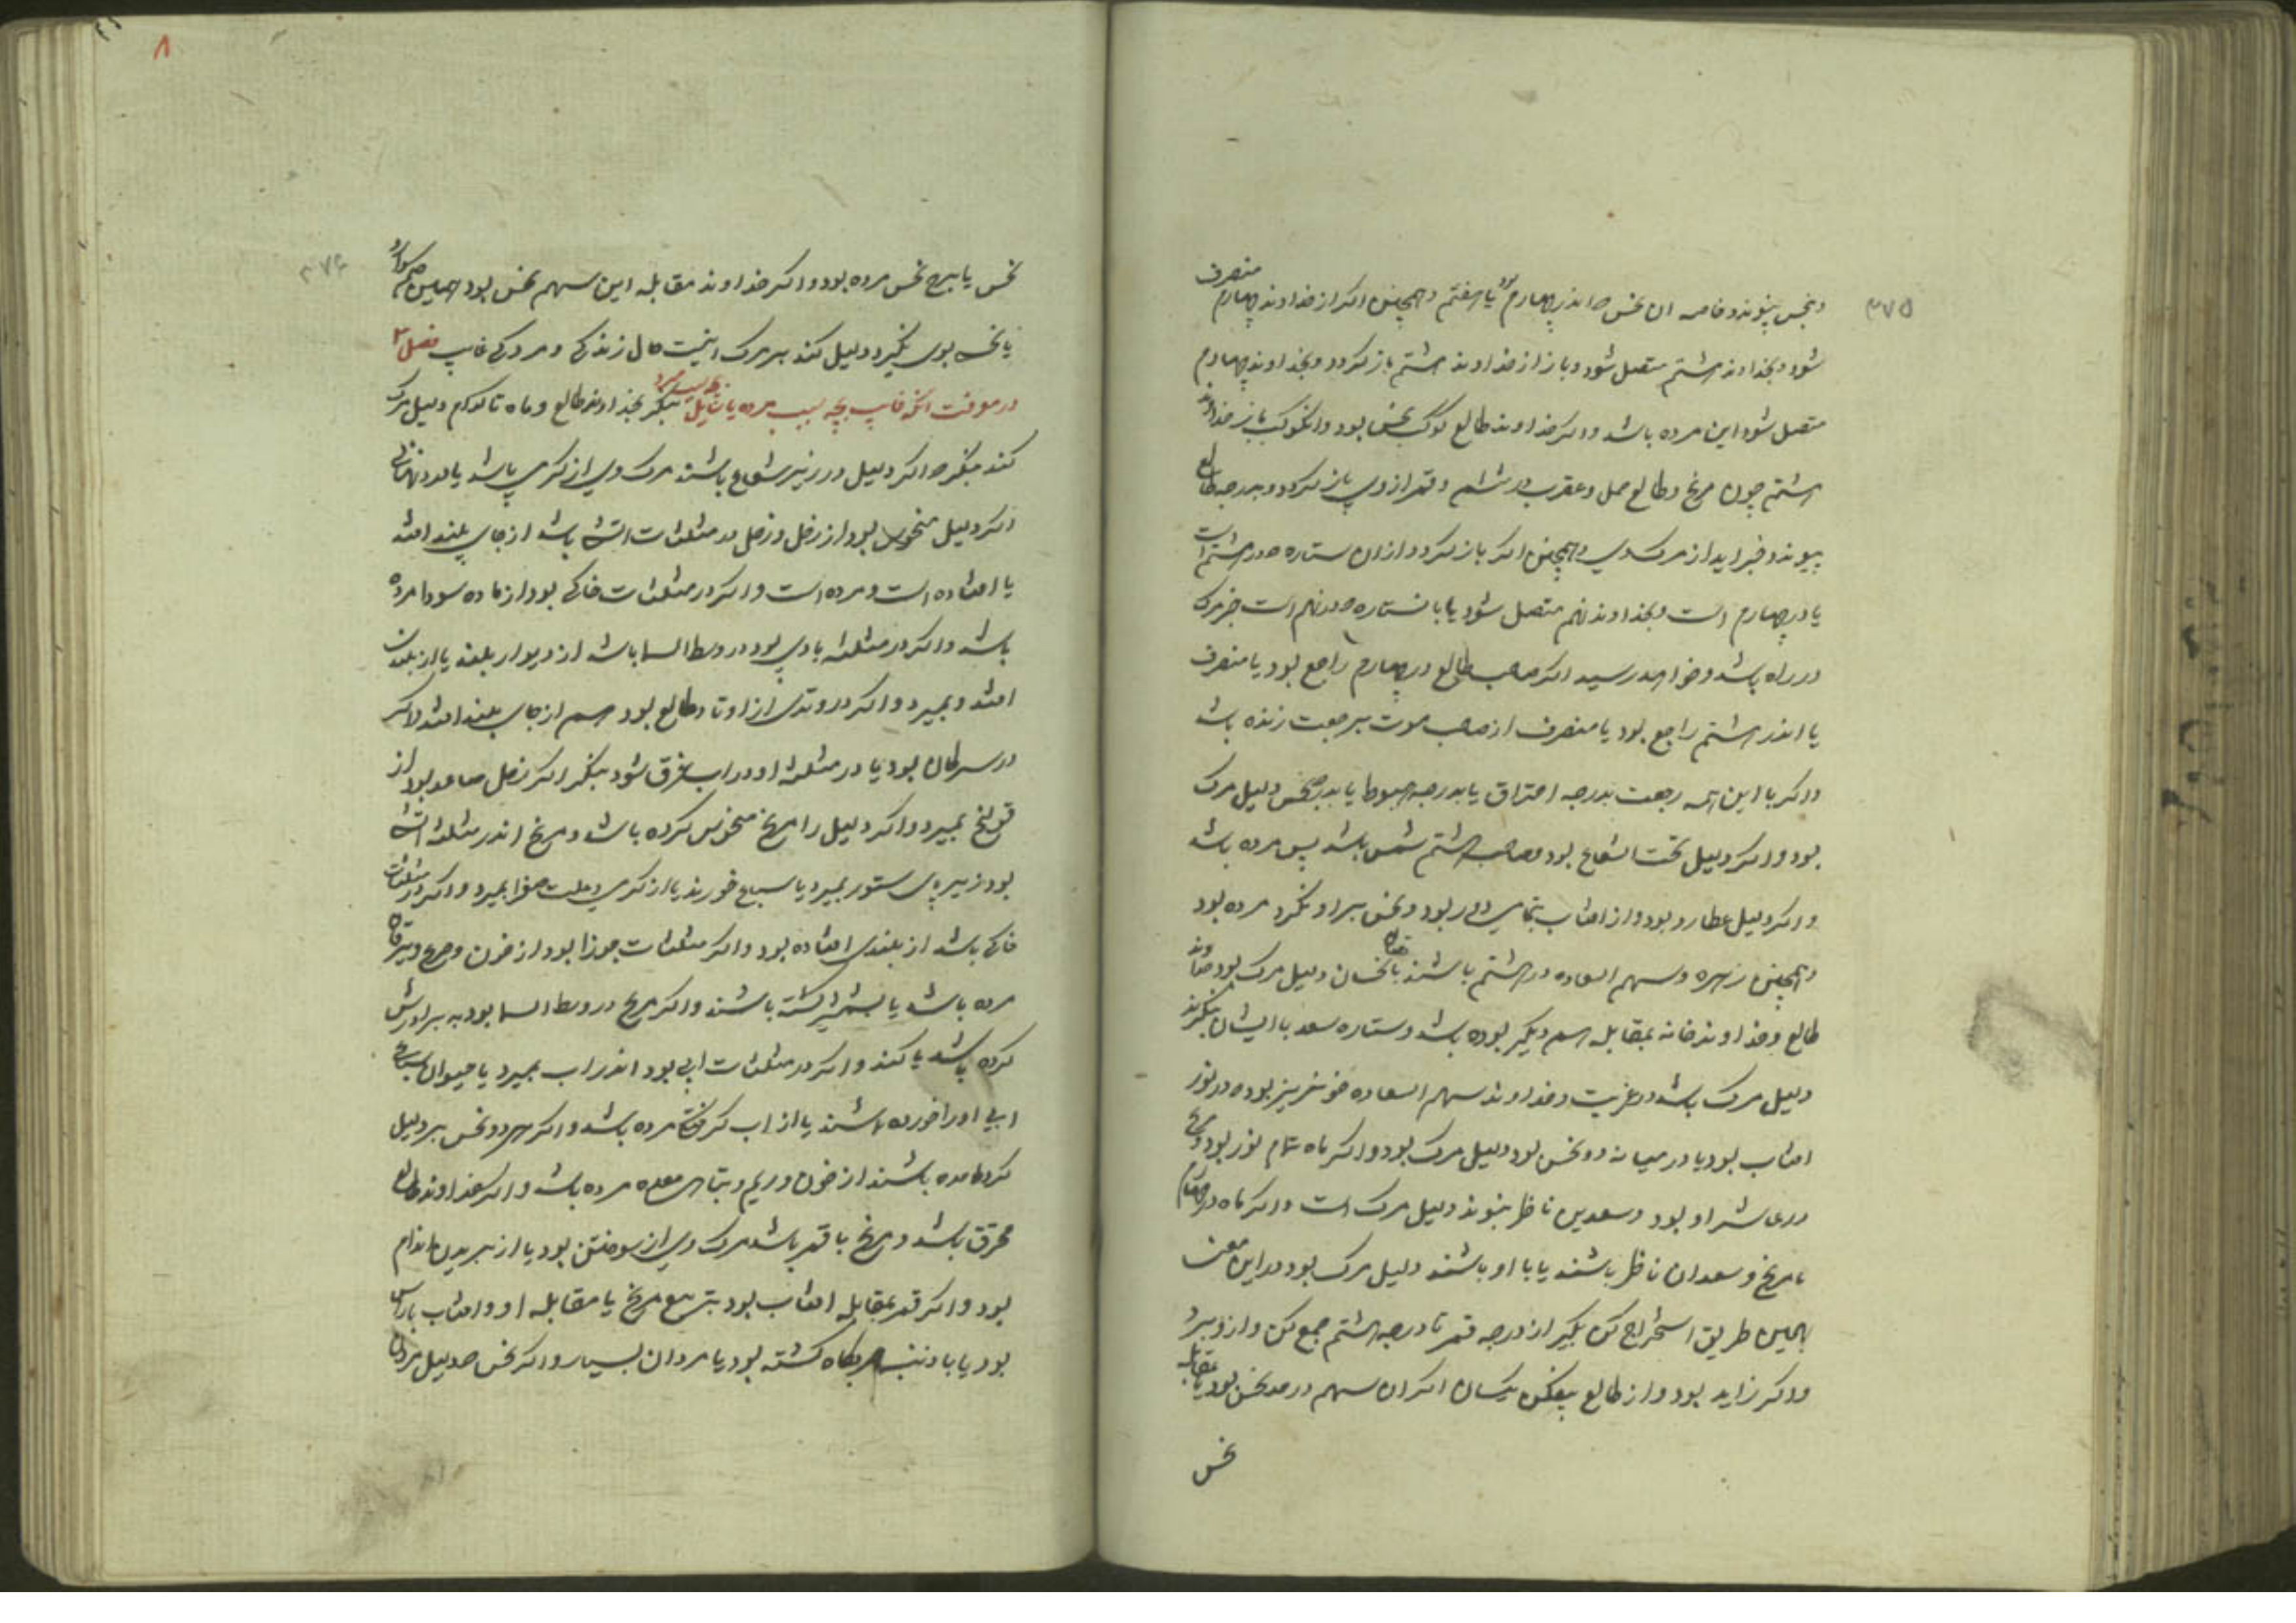 ۳۷۵
منصرف
و بنحس پیوندد خاصه ان نحس که اندر چهارم بود یا هفتم و همچنین اکر از خداوند چهارم
شود و بخداوند هشتم متصل شود و باز از خداوند هشتم باز کردد و بخداوند چهارم
متصل شود این مرده باشد و اکر خداوند طالع کوکب نحس بود و آن کوکب باز خداوند
هشتم چون مریخ و طالع حمل و عقرب در هشتم و قمر از وی باز کردد و بدرجه طالع
پیوندد خبر اید از مرک وی و همچنین اکر باز کردد از ان ستاره که در هشتم است
یا در چهارم است و بخداوند نهم متصل شود یا با ستاره که در نهم است خبر مرک
در راه باشد و خواهد رسید اکر صاحب طالع در چهارم راجع بود یا منصرف
یا اندر هشتم راجع بود یا منصرف از صاحب موت برجعت زنده باشد
و اکر با این همه رجعت بدرجه احتراق یا بدرجه هبوط یا بدرجه نحس دلیل مرک
بود و اکر دلیل تحت الشعاع بود و صاحب هشتم شمس باشد پس مرده باشد
و اکر دلیل عطارد بود و از افتاب بود و نحس بر او نکرد مرده بود
و همچنین زهره و سهم السعاده در هشتم باشند با نحسان دلیل مرک بود خداوند
طالع و خداوند خانه بمقابله هم دیکر بوده باشد و ستاره سعد با ایشان ننکرند
دلیل مرک باشد در غربت و خداوند سهم السعاده بوده در نور
افتاب بود یا در میانه دو نحس بود دلیل مرک بود و اکر ماه تمام نور بود و مریخ
در عاشر او بود و سعدین ناظر نبوند دلیل مرک است و اکر ماه در
با مریخ و سعدان ناظر باشند یا با او باشند دلیل مرک بود در این معنی
بهمین طریق استخراج کن بکیر از درجه قمر تا درجه هشتم جمع کن و از و ببرد
و اکر زاید بود و از طالع بیفکن یکسان اکر ان سهم در حد نحس بود یا بمقابله
نحس
۸
۳۷۶
نحس یا ببرج نحس مرده بود و اکر خداوند مقابله این سهم نحس بود همین حکم
یا نحس بوی نکیرد دلیل کند بر مرک اینست حال زندکی و مردکی غایب فصل ۳
در معرفت انکه غایب بچه سبب مرده بنکر بخداوند طالع و ماه تا کدام دلیل مرک
کند بنکر که اکر دلیل در زیر شعاع باشند مرک وی از کرمی باشد یا
اکر دلیل منحوس بود از زحل و زحل در مثلثات اتشی باشد از جای بلند افتد
یا افتاده است و مرده است و اکر در مثلثات خاکی بود از ماده سودا مرده
باشد و اکر در مثلثه بادی بود در وسط السما باشد از دیوار بلند یا از بلندی
افتد و بمیرد و اکر در وتدی از اوتاد طالع بود هم از جای بلند افتد و اکر
در سرطان بود یا در مثلثه او در اب غرق شود بنکر اکر زحل صاعد بود از
قولنج بمیرد و اکر دلیل را مریخ منحوس کرده باشد و مریخ اندر مثلثه اتشی
بود زیر پای ستور بمیرد یا سباع خورند یا از کرمی و علت صفرا بمیرد و اکر در مثلثات
خاکی باشد از بلندی افتاده بود و اکر مثلثات جوزا بود از خون و
مرده باشد یا بشمشیر کشته باشند و اکر مریخ در وسط السما بود
کرده باشد یا کنند و اکر در مثلثات ابی بود اندر اب بمیرد یا حیوان
ابی او را خورده باشند یا از اب کرفتکی مرده باشد و اکر هر دو نحس بر دلیل
کرد امده باشند از خون و ریم و تباهی معده مرده باشد و اکر خداوند طالع
محرق باشد و مریخ با قمر باشد مرک وی از سوختن بود یا از بریدن اندام
بود و اکر قمر بمقابله افتاب بود بتربیع مریخ یا مقابله او و افتاب با راس
بود یا با ذنب کشته بود یا مردان بسیار و اکر نحس دلیل